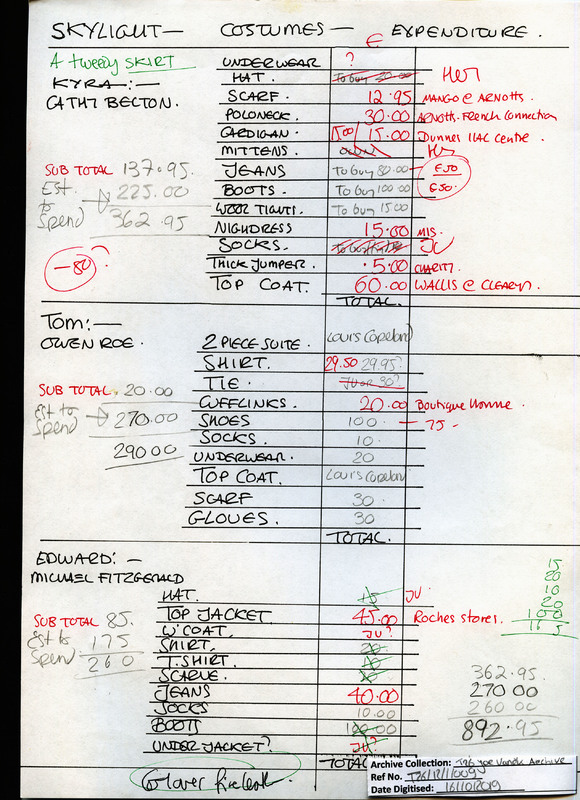 SKYLIGHT— COSTUMES— € EXPENDITURE.
A tweedy SKIRT UNDERWEAR ?
KYRA:— HAT. To buy 30.00 Her
CATHY BELTON. SCARF. 12.95 MANGO @ ARNOTTS.
POLONECK. 30.00 ARNOTTS-French Connection
CARDIGAN. 15.00 15.00 Dunnes ILAC Centre.
MITTENS. Her
SUB TOTAL 137.95. JEANS To buy 80.00 €50
Est. to Spend 225.00 BOOTS. To buy 100.00 €50.
362.95 WOOL TIGHTS. To buy 15.00
NIGHDRESS 15.00 M&S.
SOCKS. JV
-80? THICK JUMPER. 5.00 CHARITY.
TOP COAT. 60.00 WALLIS @ CLEARYS.
TOTAL.
Tom:—
OWEN ROE. 2 PIECE SUITE. Louis Copeland
SHIRT. 29.50 29.95?
TIE JV or 30?
SUB TOTAL. 20.00 CUFFLINKS. 20.00 Boutique Homme.
est to Spend 270.00 SHOES 100. — 75 -
SOCKS. 10.
290 00 UNDERWEAR. 20
TOP COAT. Louis Copeland
SCARF 30.
GLOVES. 30
TOTAL.
EDWARD:—
MICHAEL FITZGERALD
HAT. 15 JV
SUB TOTAL 85. TOP JACKET 45.00 Roches stores.
W'COAT. JV?
est to Spend 175 SHIRT. 20
260 T.SHIRT. 10
SCARVE. 20
JEANS 40.00
SOCKS 10.00
BOOTS 100.00
UNDER JACKET? JV?
TOTAL
15
20
10
20
100
362.95.
270 00
260 00
892.95
Archive Collection: T26 Joe Vanek Archive
Ref No.
Date Digitised: 16/10/2019